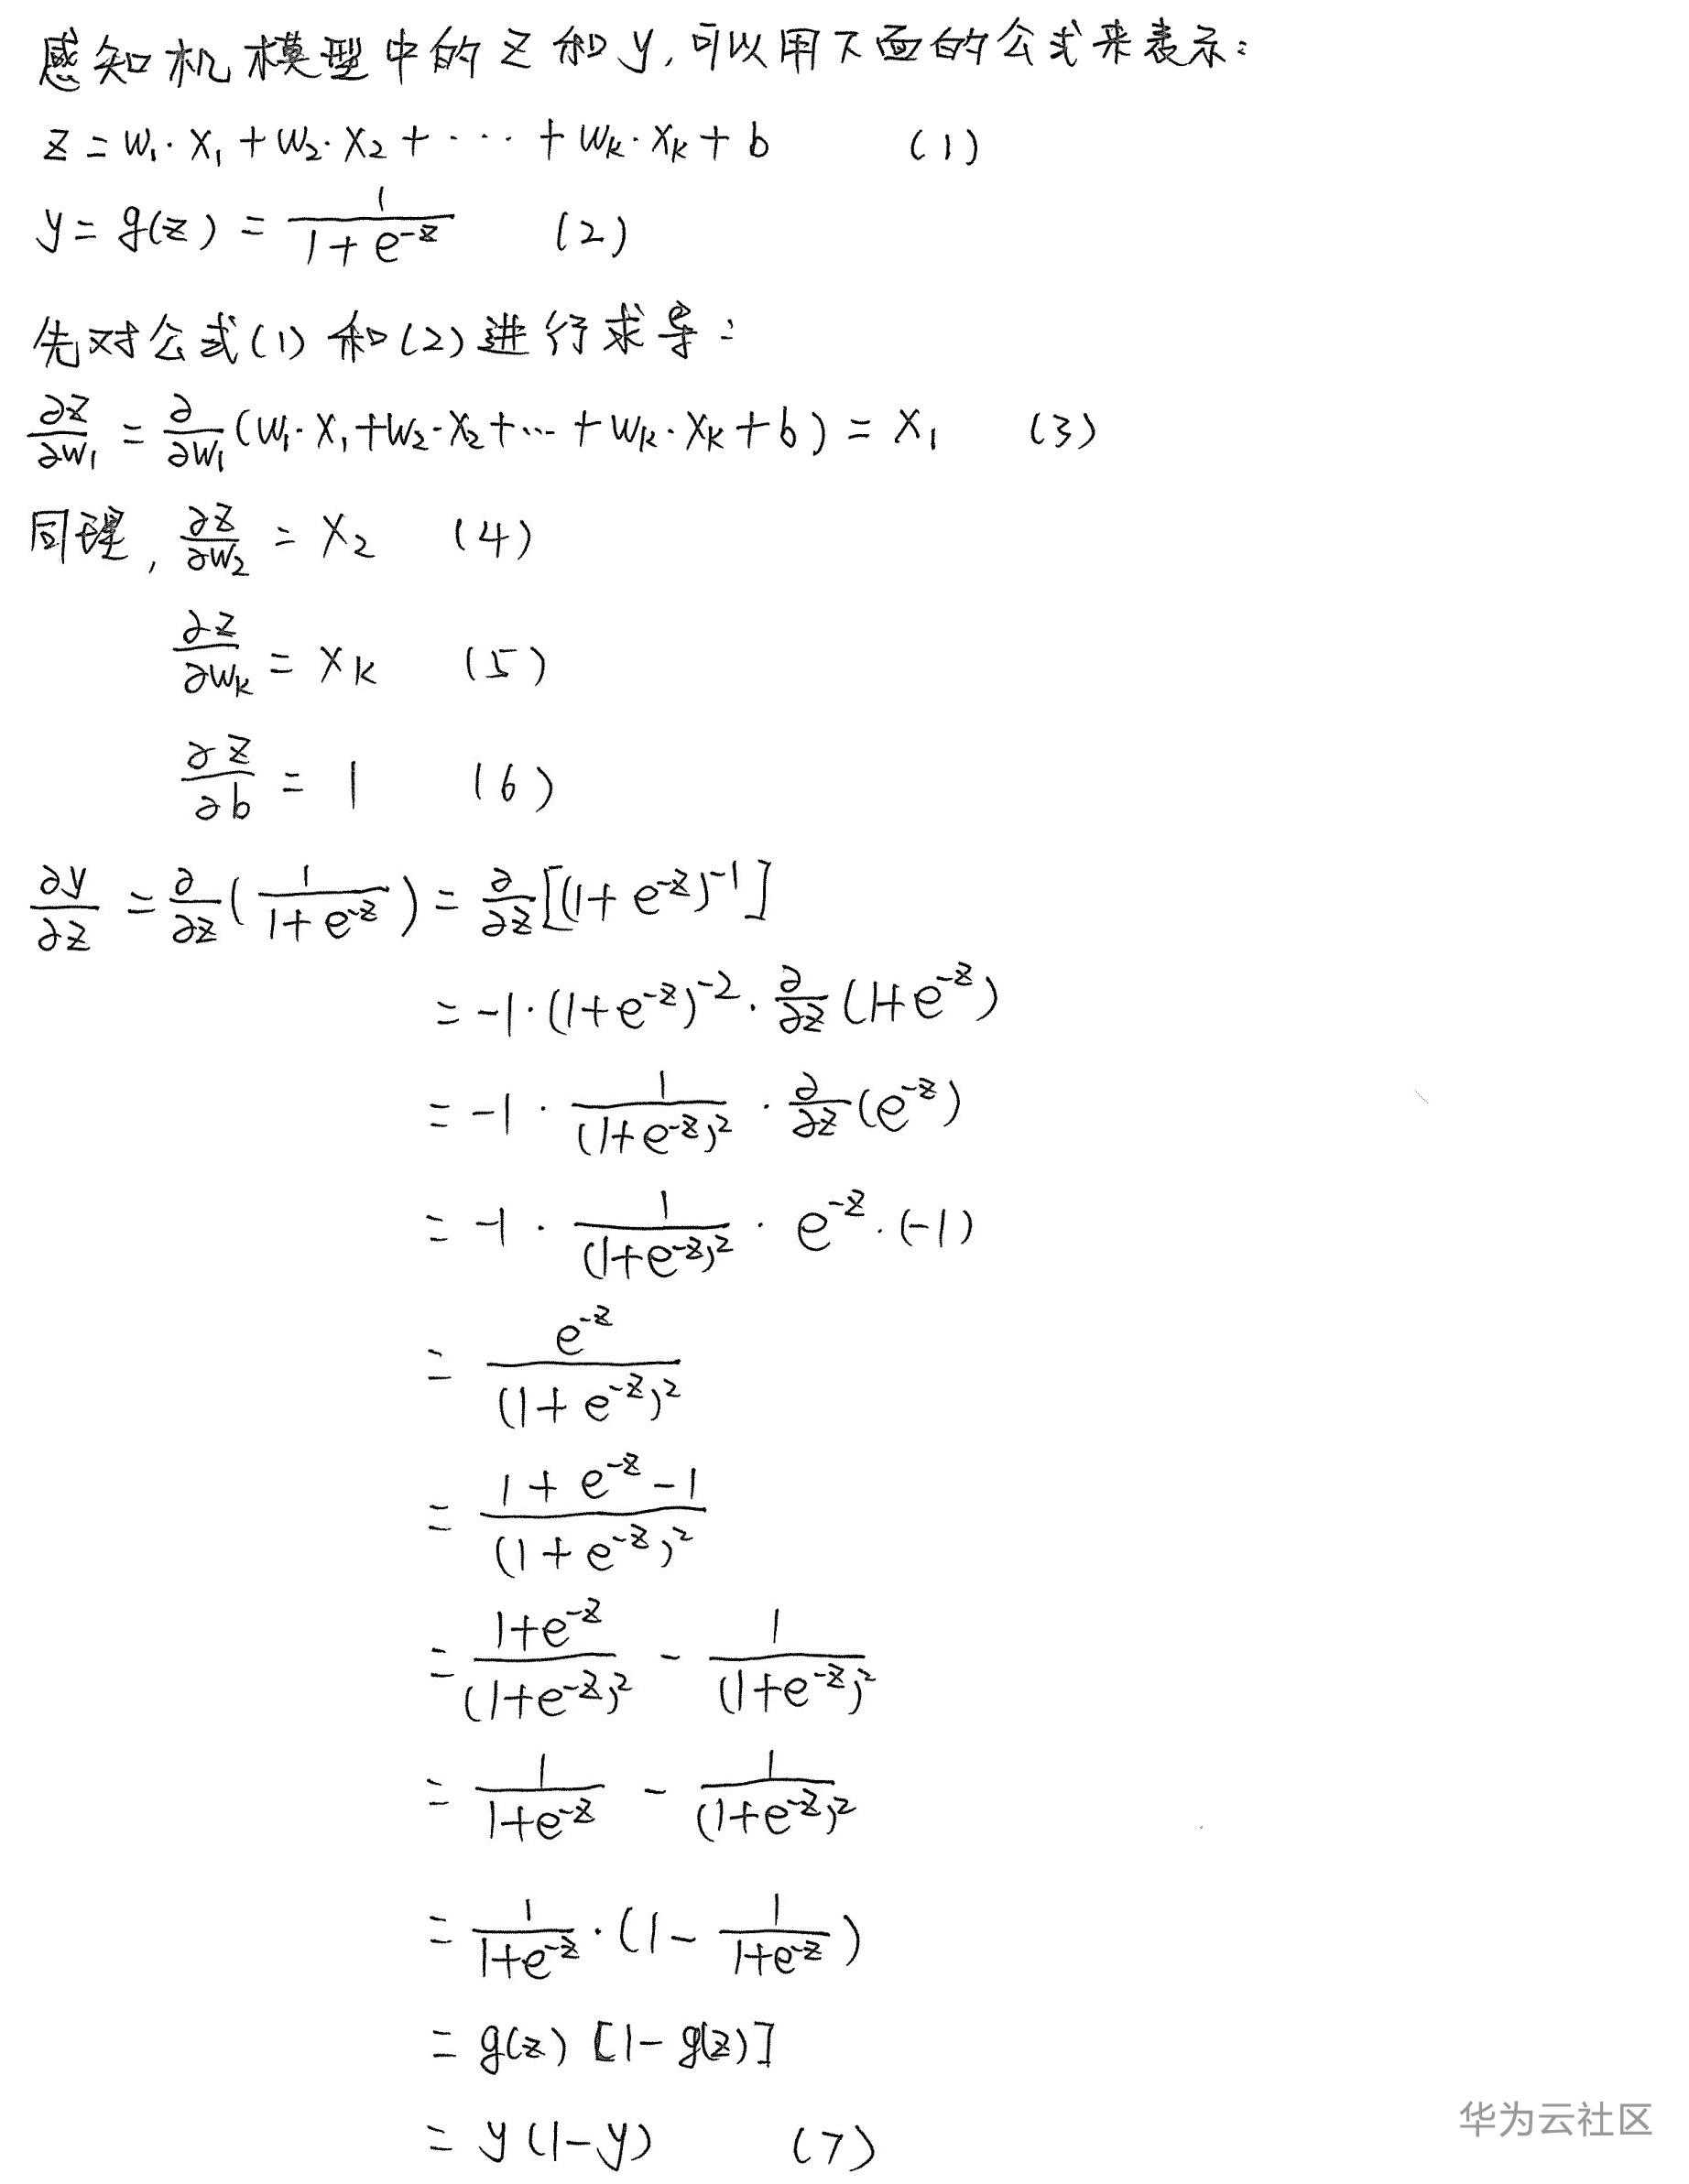 感知机模型中的 z 和 y, 可以用下面的公式来表示:
z = w₁·x₁ + w₂·x₂ + ··· + wₖ·xₖ + b (1)
y = g(z) = 1/(1+e^(-z)) (2)
先对公式(1) 和(2)进行求导:
∂z/∂w₁ = ∂/∂w₁(w₁·x₁+w₂·x₂+···+wₖ·xₖ+b) = x₁ (3)
同理, ∂z/∂w₂ = x₂ (4)
∂z/∂wₖ = xₖ (5)
∂z/∂b = 1 (6)
∂y/∂z = ∂/∂z(1/(1+e^(-z))) = ∂/∂z[(1+e^(-z))^(-1)]
= -1·(1+e^(-z))^(-2)·∂/∂z(1+e^(-z))
= -1·1/(1+e^(-z))²·∂/∂z(e^(-z))
= -1·1/(1+e^(-z))²·e^(-z)·(-1)
= e^(-z)/(1+e^(-z))²
= (1+e^(-z)-1)/(1+e^(-z))²
= (1+e^(-z))/(1+e^(-z))² - 1/(1+e^(-z))²
= 1/(1+e^(-z)) - 1/(1+e^(-z))²
= 1/(1+e^(-z))·(1-1/(1+e^(-z)))
= g(z) [1-g(z)]
= y(1-y) (7)
华为云社区